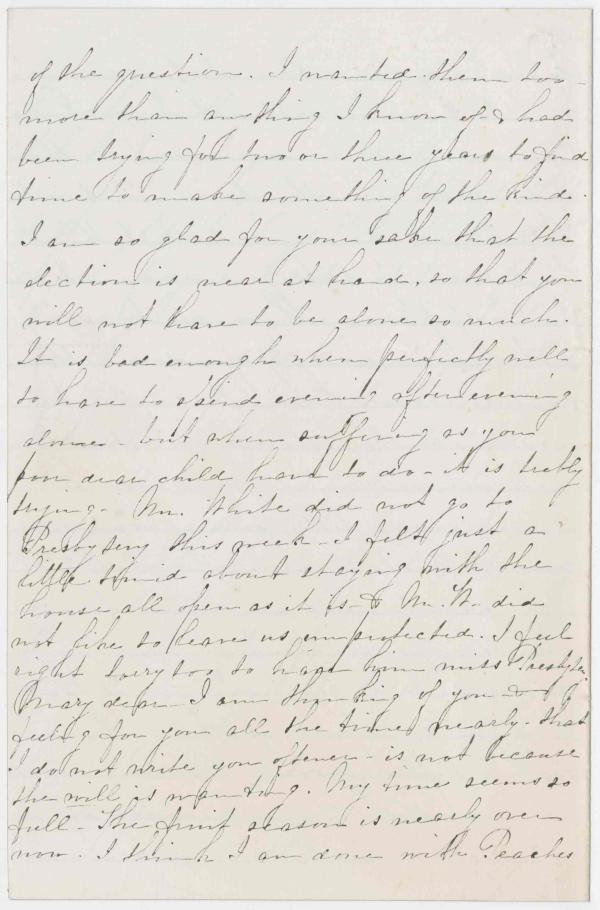 of the question. I wanted them too
more than anything I know of & had
been trying for two or three years to find
time to make something of the kind.
I am so glad for your sake that the
election is near at hand, so that you
will not have to be alone so much.
It is bad enough when perfectly well
to have to spend evening after evening
alone - but when suffering as you
poor dear child have to do - it is trebly
trying - Mr. White did not go to
Presbytery this week - I felt just a
little timid about staying with the
house all open as it is & Mr. W. did
not like to leave us unprotected. I feel
right sorry too to have him miss Presbytery.
Mary dear - I am thinking of you &
feeling for you all the time nearly - that
I do not write you oftener - is not because
the will is wanting. My time seems so
full - The fruit season is nearly over
now. I think I am done with Peaches